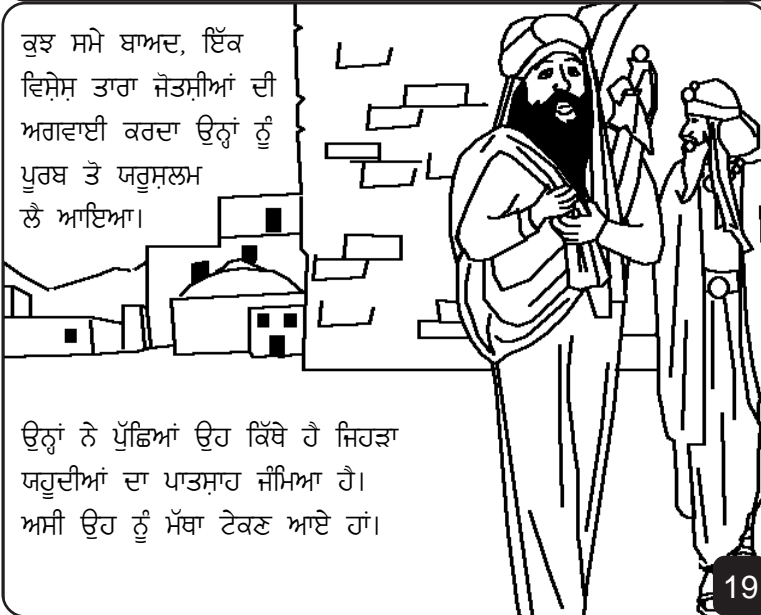 ਕੁਝ ਸਮੇ ਬਾਅਦ, ਇੱਕ
ਵਿਸ਼ੇਸ਼ ਤਾਰਾ ਜੋਤਸ਼ੀਆਂ ਦੀ
ਅਗਵਾਈ ਕਰਦਾ ਉਨ੍ਹਾਂ ਨੂੰ
ਪੂਰਬ ਤੋ ਯਰੂਸ਼ਲਮ
ਲੈ ਆਇਆ।
ਉਨ੍ਹਾਂ ਨੇ ਪੁੱਛਿਆਂ ਉਹ ਕਿੱਥੇ ਹੈ ਜਿਹੜਾ
ਯਹੂਦੀਆਂ ਦਾ ਪਾਤਸ਼ਾਹ ਜੰਮਿਆ ਹੈ।
ਅਸੀ ਉਹ ਨੂੰ ਮੱਥਾ ਟੇਕਣ ਆਏ ਹਾਂ।
19